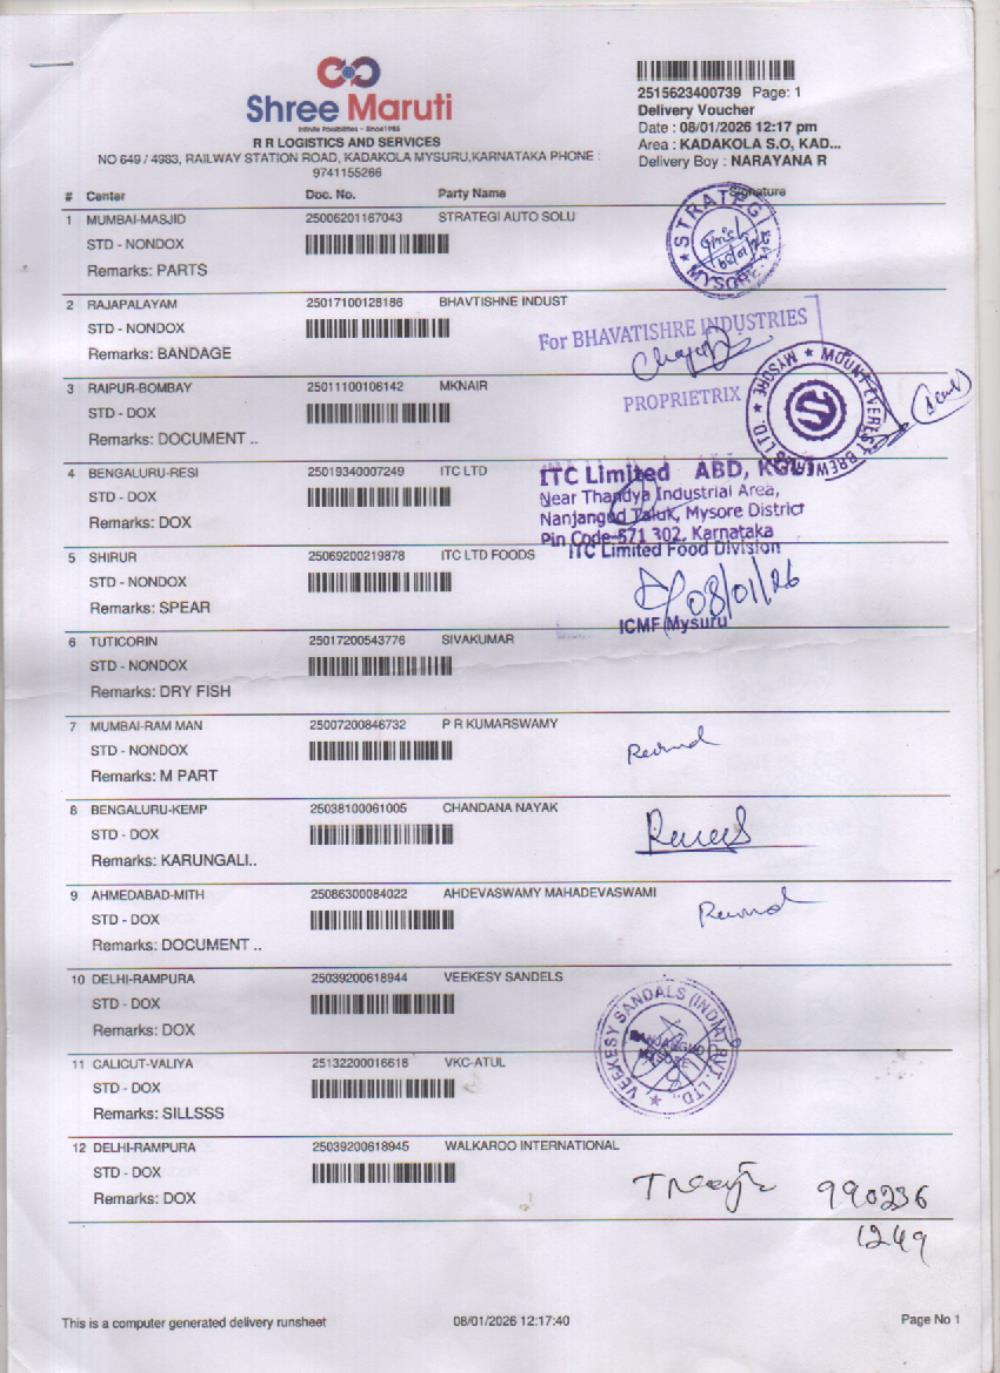 Shree Maruti
Infinite Possibilities - Since 1985
R R LOGISTICS AND SERVICES
NO 649 / 4983, RAILWAY STATION ROAD, KADAKOLA MYSURU,KARNATAKA PHONE :
9741155266
2515623400739 Page: 1
Delivery Voucher
Date : 08/01/2026 12:17 pm
Area : KADAKOLA S.O, KAD...
Delivery Boy : NARAYANA R
# Center Doc. No. Party Name Signature
1 MUMBAI-MASJID 25006201167043 STRATEGI AUTO SOLU
STD - NONDOX
Remarks: PARTS
STRATEGI
MYSORE
2 RAJAPALAYAM 25017100128186 BHAVTISHNE INDUST
STD - NONDOX
Remarks: BANDAGE
For BHAVATISHRE INDUSTRIES
PROPRIETRIX
3 RAIPUR-BOMBAY 25011100106142 MKNAIR
STD - DOX
Remarks: DOCUMENT ..
MOUNT EVEREST BREWERIES LTD. ★ MYSORE ★
4 BENGALURU-RESI 25019340007249 ITC LTD
STD - DOX
Remarks: DOX
ITC Limited ABD, KGL
Near Thandya Industrial Area,
Nanjangud Taluk, Mysore District
Pin Code-571 302, Karnataka
5 SHIRUR 25069200219878 ITC LTD FOODS
STD - NONDOX
Remarks: SPEAR
ITC Limited Food Division
08/01/26
ICMF Mysuru
6 TUTICORIN 25017200543776 SIVAKUMAR
STD - NONDOX
Remarks: DRY FISH
7 MUMBAI-RAM MAN 25007200846732 P R KUMARSWAMY
STD - NONDOX
Remarks: M PART
8 BENGALURU-KEMP 25038100061005 CHANDANA NAYAK
STD - DOX
Remarks: KARUNGALI..
9 AHMEDABAD-MITH 25086300084022 AHDEVASWAMY MAHADEVASWAMI
STD - DOX
Remarks: DOCUMENT ..
10 DELHI-RAMPURA 25039200618944 VEEKESY SANDELS
STD - DOX
Remarks: DOX
VEEKESY SANDALS (INDIA) PVT. LTD.
11 CALICUT-VALIYA 25132200016618 VKC-ATUL
STD - DOX
Remarks: SILLSSS
12 DELHI-RAMPURA 25039200618945 WALKAROO INTERNATIONAL
STD - DOX
Remarks: DOX
990236
1249
This is a computer generated delivery runsheet 08/01/2026 12:17:40 Page No 1